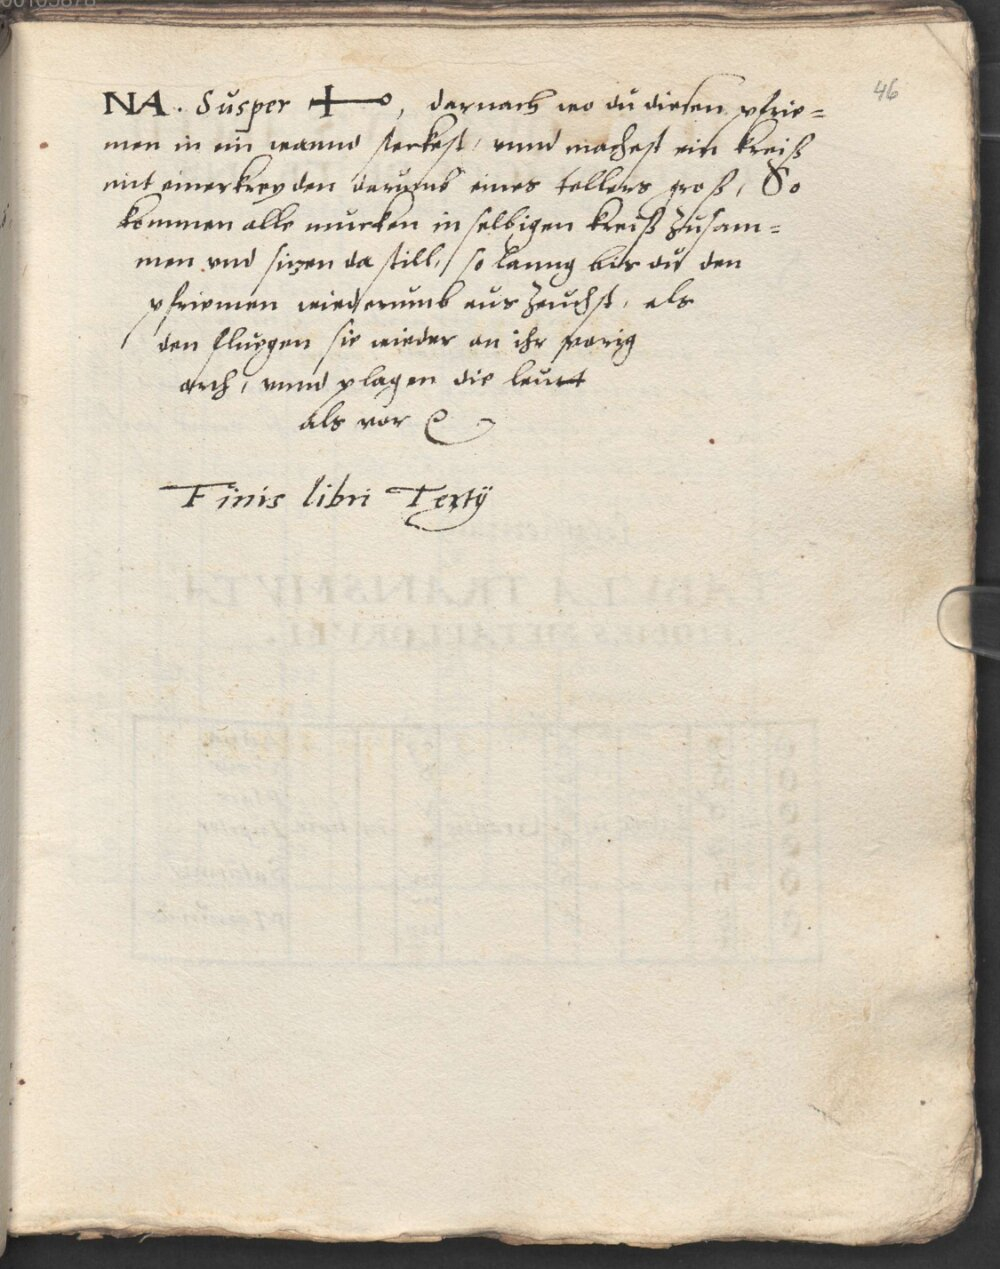 46
NA. Susper, darnach wo du diesen pfrie=
men in ein wannd sterkest, vnnd machest ein kreiß
mit einer kreyden darumb eines tellers groß, So
kommen alle mucken in selbigen kreiß zusam=
men vnd sizen da still, so lanng bis du den
pfriemen wiederumb aus zeuchst, als
den fluegen sie wieder an ihr vorig
orth, vnnd plagen die leutt
als vor
Finis libri Tertÿ